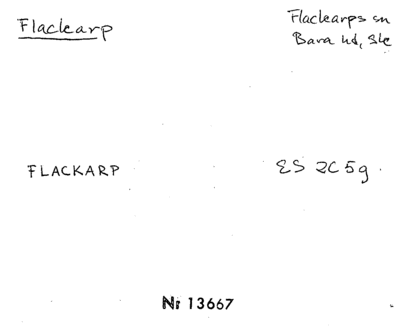 Flackarp
Flackarps sn
Bara hd, Ske
FLACKARP
ES 2C5g.
Nr 13667